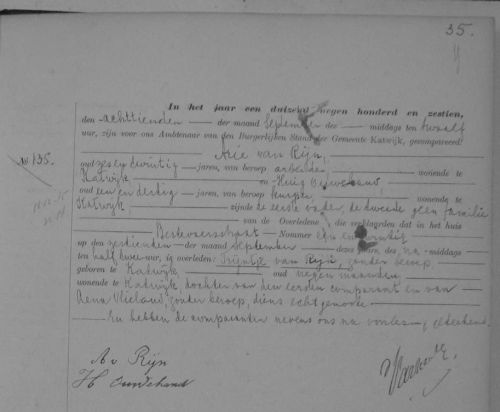 35.
In het jaar een duizend negen honderd en zestien,
den achttienden der maand September des middags ten twaalf
ure, zijn voor ons Ambtenaar van den Burgerlijken Stand der Gemeente Katwijk, gecompareerd:
No 135. Arie van Rijn,
oud zes en dertig jaren, van beroep arbeider, wonende te
Katwijk en Huig Ouwehand,
oud een en dertig jaren, van beroep wonende te
Katwijk zijnde de eerste vader, de tweede geen familie
van de Overledene die verklaarden dat in het huis
Nommer
op den zestienden der maand September dezes jaars, des na middags
ten half twee ure, is overleden: Trijntje van Rijn, zonder beroep,
geboren te Katwijk, oud negen maanden,
wonende te Katwijk dochter van den eersten comparant en van
Vlieland, zonder beroep, diens echtgenoote
En hebben de comparanten nevens ons na voorlezing geteekend.
A v Rijn
H Ouwehand